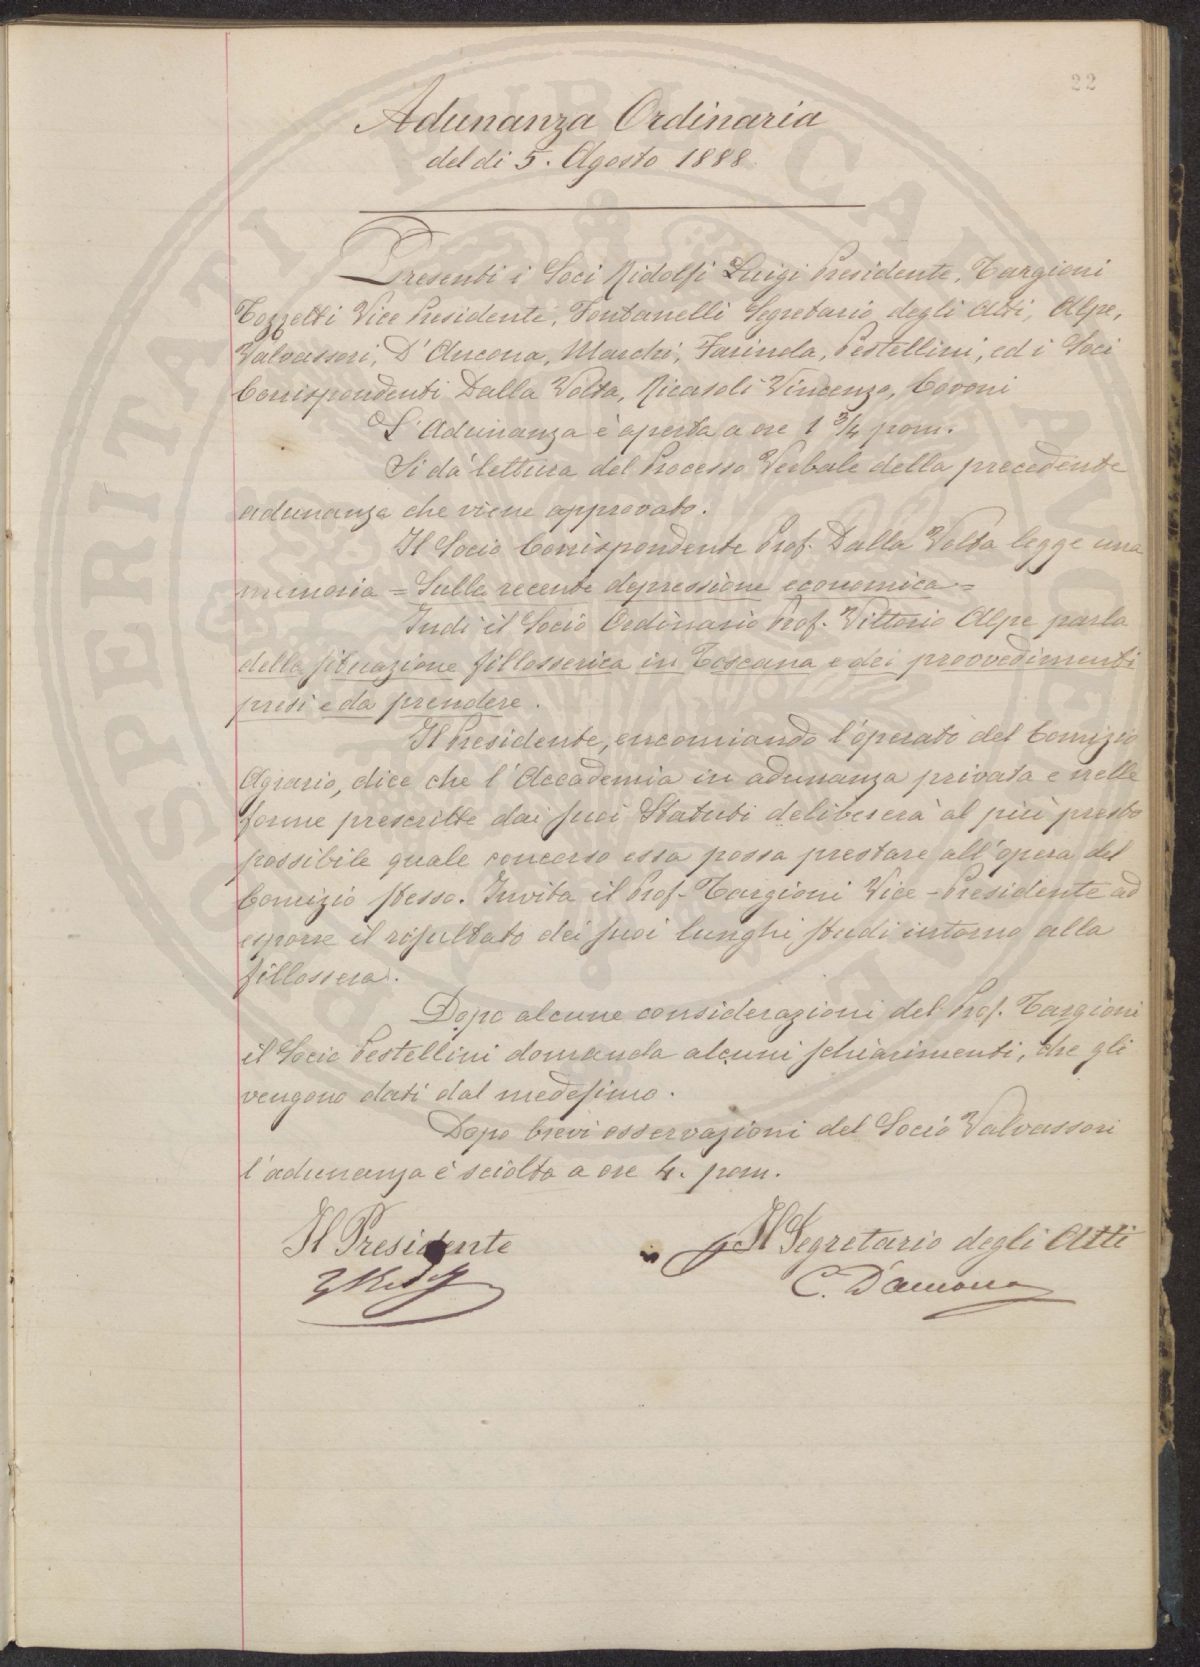 22
Adunanza Ordinaria
del dì 5. Agosto 1888
Presenti i Soci Ridolfi Luigi Presidente, Targioni
Tozzetti Vice Presidente, Fontanelli Segretario degli Atti, Alpe,
Valvassori, D'Ancona, Marchi, Farinola, Pestellini, ed i Soci
Corrispondenti Dalla Volta, Ricasoli Vincenzo, Covoni
L'Adunanza è aperta a ore 1 3/4 pom.
Si dà lettura del Processo Verbale della precedente
adunanza che viene approvato.
Il Socio Corrispondente Prof. Dalla Volta legge una
memoria = Sulla recente depressione economica =
Indi il Socio Ordinario Prof. Vittorio Alpe parla
della situazione fillosserica in Toscana e dei provvedimenti
presi e da prendere.
Il Presidente, encomiando l'operato del Comizio
Agrario, dice che l'Accademia in adunanza privata e nelle
forme prescritte dai suoi Statuti delibererà al più presto
possibile quale concorso essa possa prestare all'opera del
Comizio stesso. Invita il Prof. Targioni Vice-Presidente ad
esporre il risultato dei suoi lunghi studi intorno alla
fillossera.
Dopo alcune considerazioni del Prof. Targioni
il Socio Pestellini domanda alcuni schiarimenti, che gli
vengono dati dal medesimo.
Dopo brevi osservazioni del Socio Valvassori
l'adunanza è sciolta a ore 4. pom.
Il Presidente
Il Segretario degli Atti
C. D'Ancona
PROSPERITATI PUBLICAE AUGENDAE